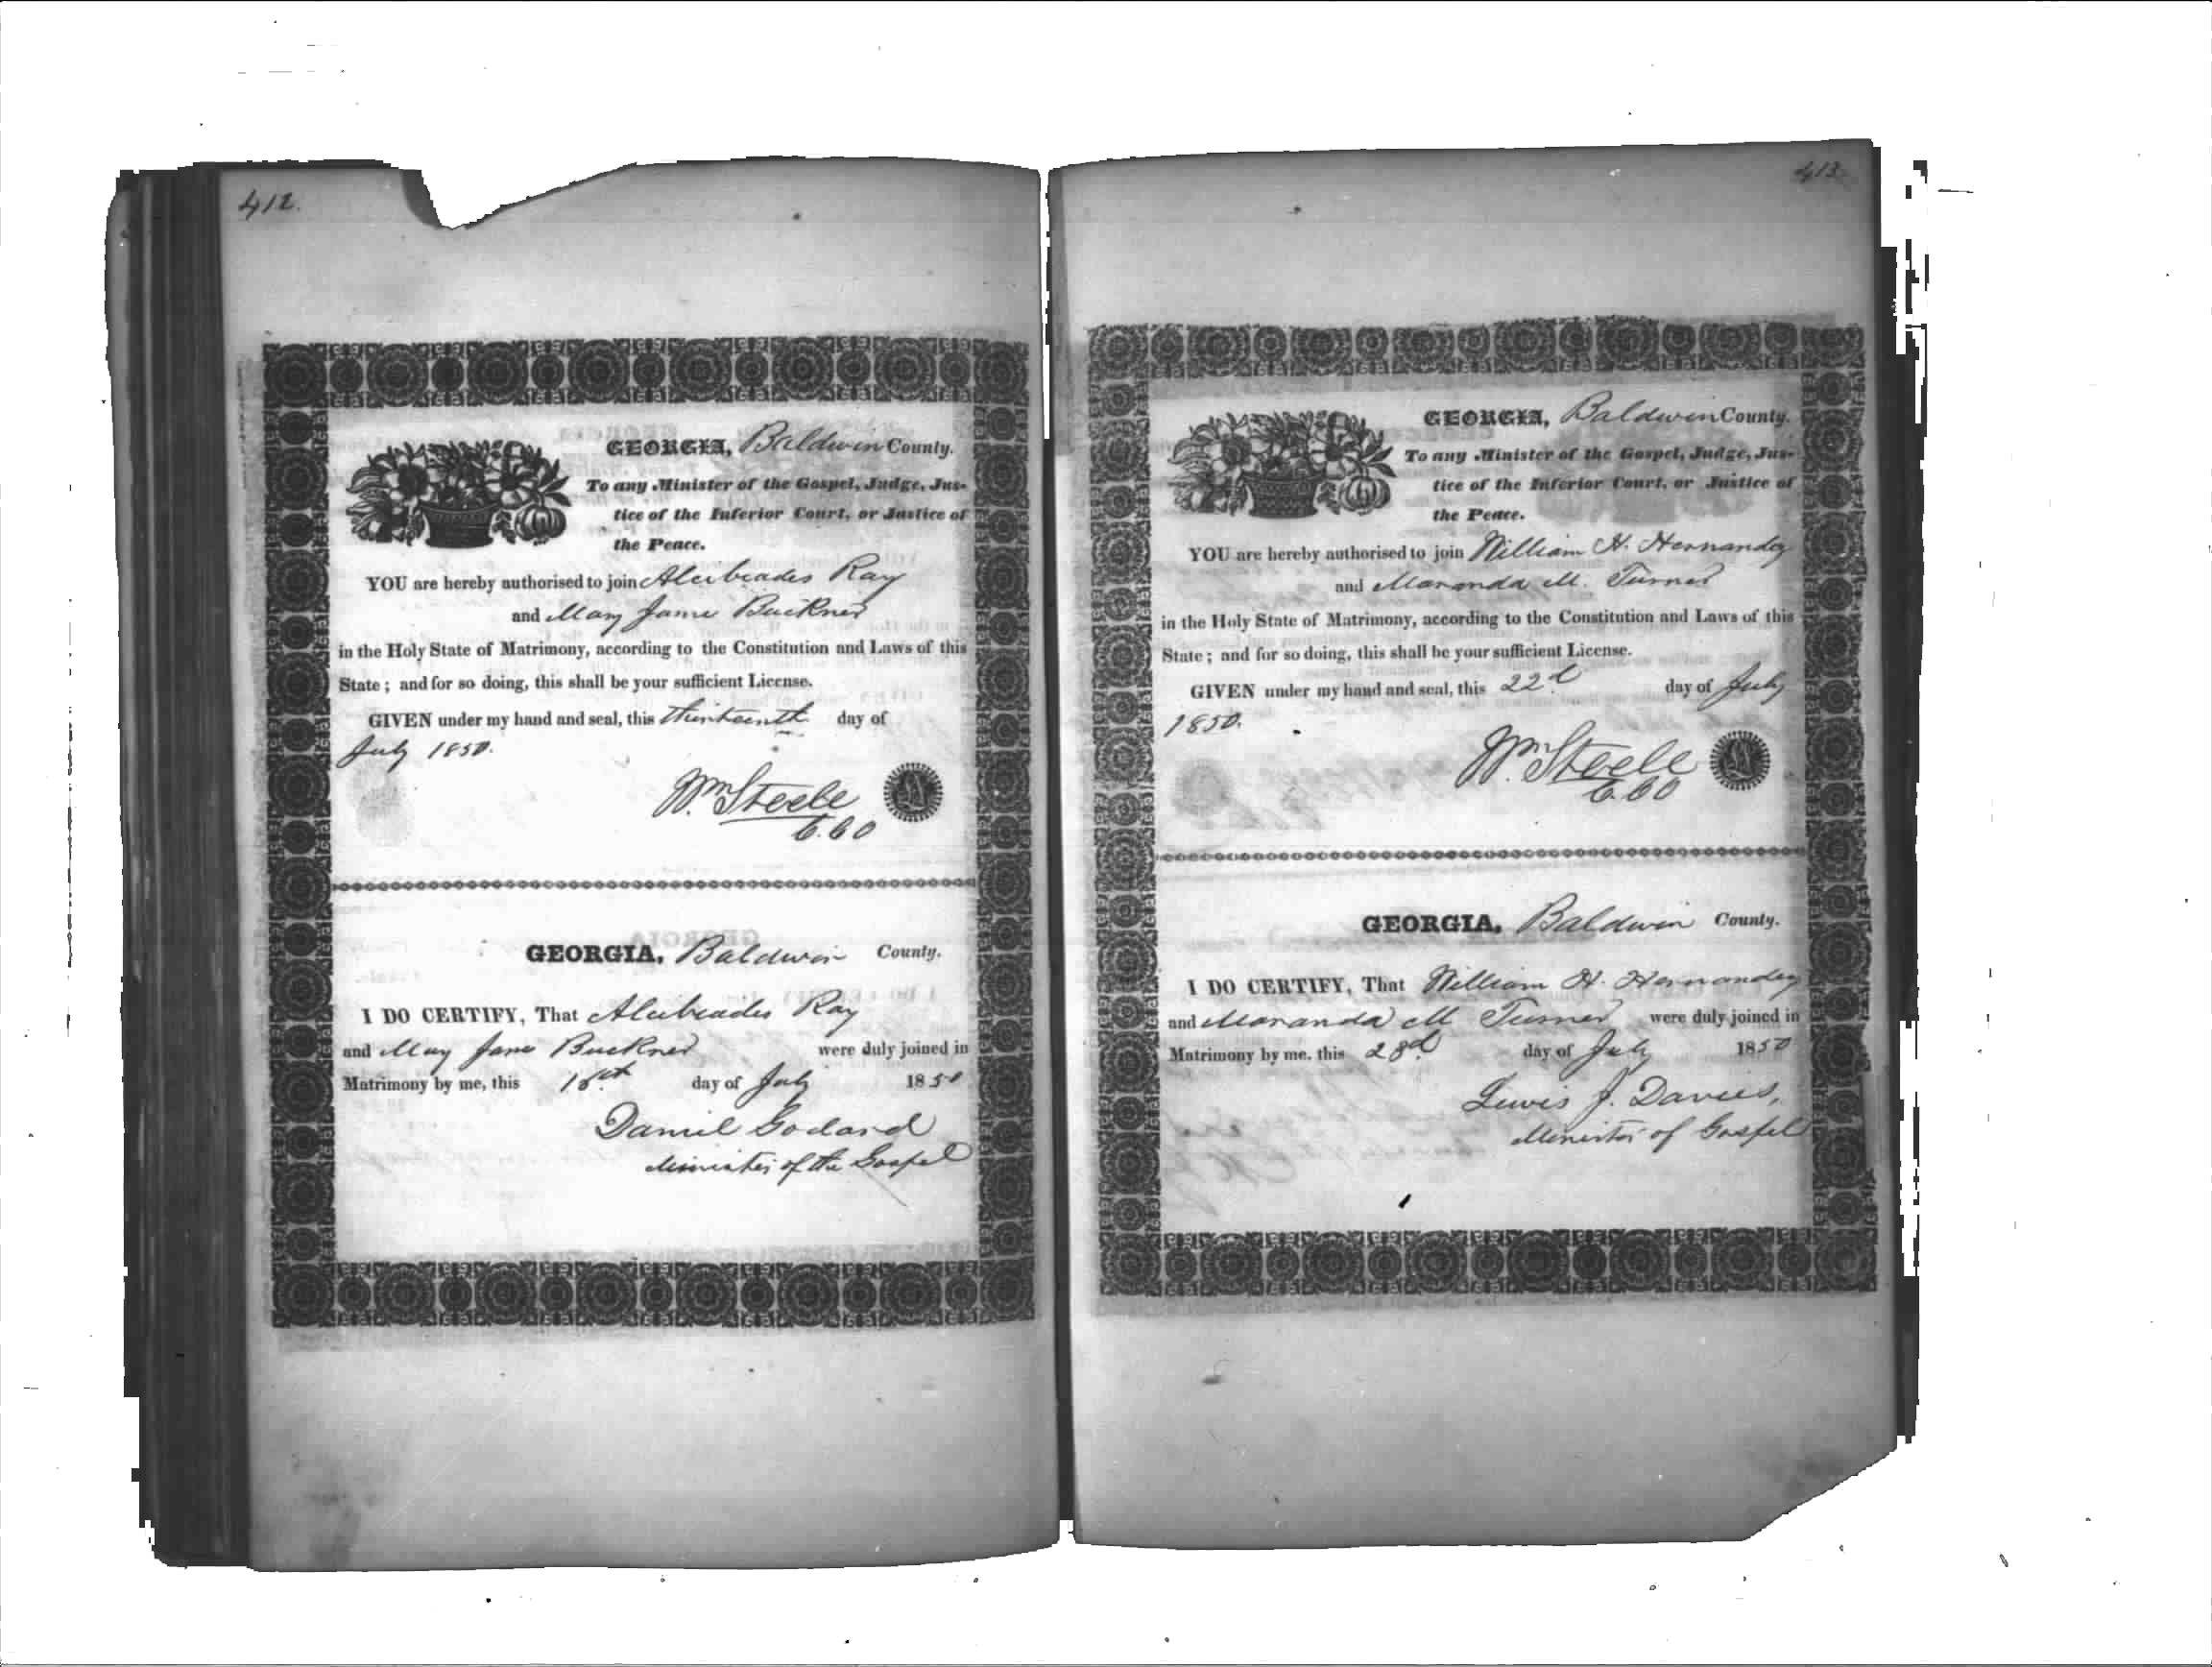 412.
GEORGIA, Baldwin County.
To any Minister of the Gospel, Judge, Jus-
tice of the Inferior Court, or Justice of
the Peace.
YOU are hereby authorised to join Alcibiades Ray
and Mary Jane Buckner
in the Holy State of Matrimony, according to the Constitution and Laws of this
State; and for so doing, this shall be your sufficient License.
GIVEN under my hand and seal, this thirteenth day of
July 1850.
Wm Steele
C.C.O
GEORGIA, Baldwin County.
I DO CERTIFY, That Alcibiades Ray
and Mary Jane Buckner were duly joined in
Matrimony by me, this day of July 1850
Daniel Godard
Minister of the Gospel
413.
GEORGIA, Baldwin County.
To any Minister of the Gospel, Judge, Jus-
tice of the Inferior Court, or Justice of
the Peace.
YOU are hereby authorised to join William H. Hernandez
and Maranda M. Turner
in the Holy State of Matrimony, according to the Constitution and Laws of this
State; and for so doing, this shall be your sufficient License.
GIVEN under my hand and seal, this 22d day of July
1850.
Wm Steele
C.C.O
GEORGIA, Baldwin County.
I DO CERTIFY, That William H. Hernandez
and Maranda M Turner were duly joined in
Matrimony by me, this day of July 1850
Lewis J. Davies,
Minister of Gospel